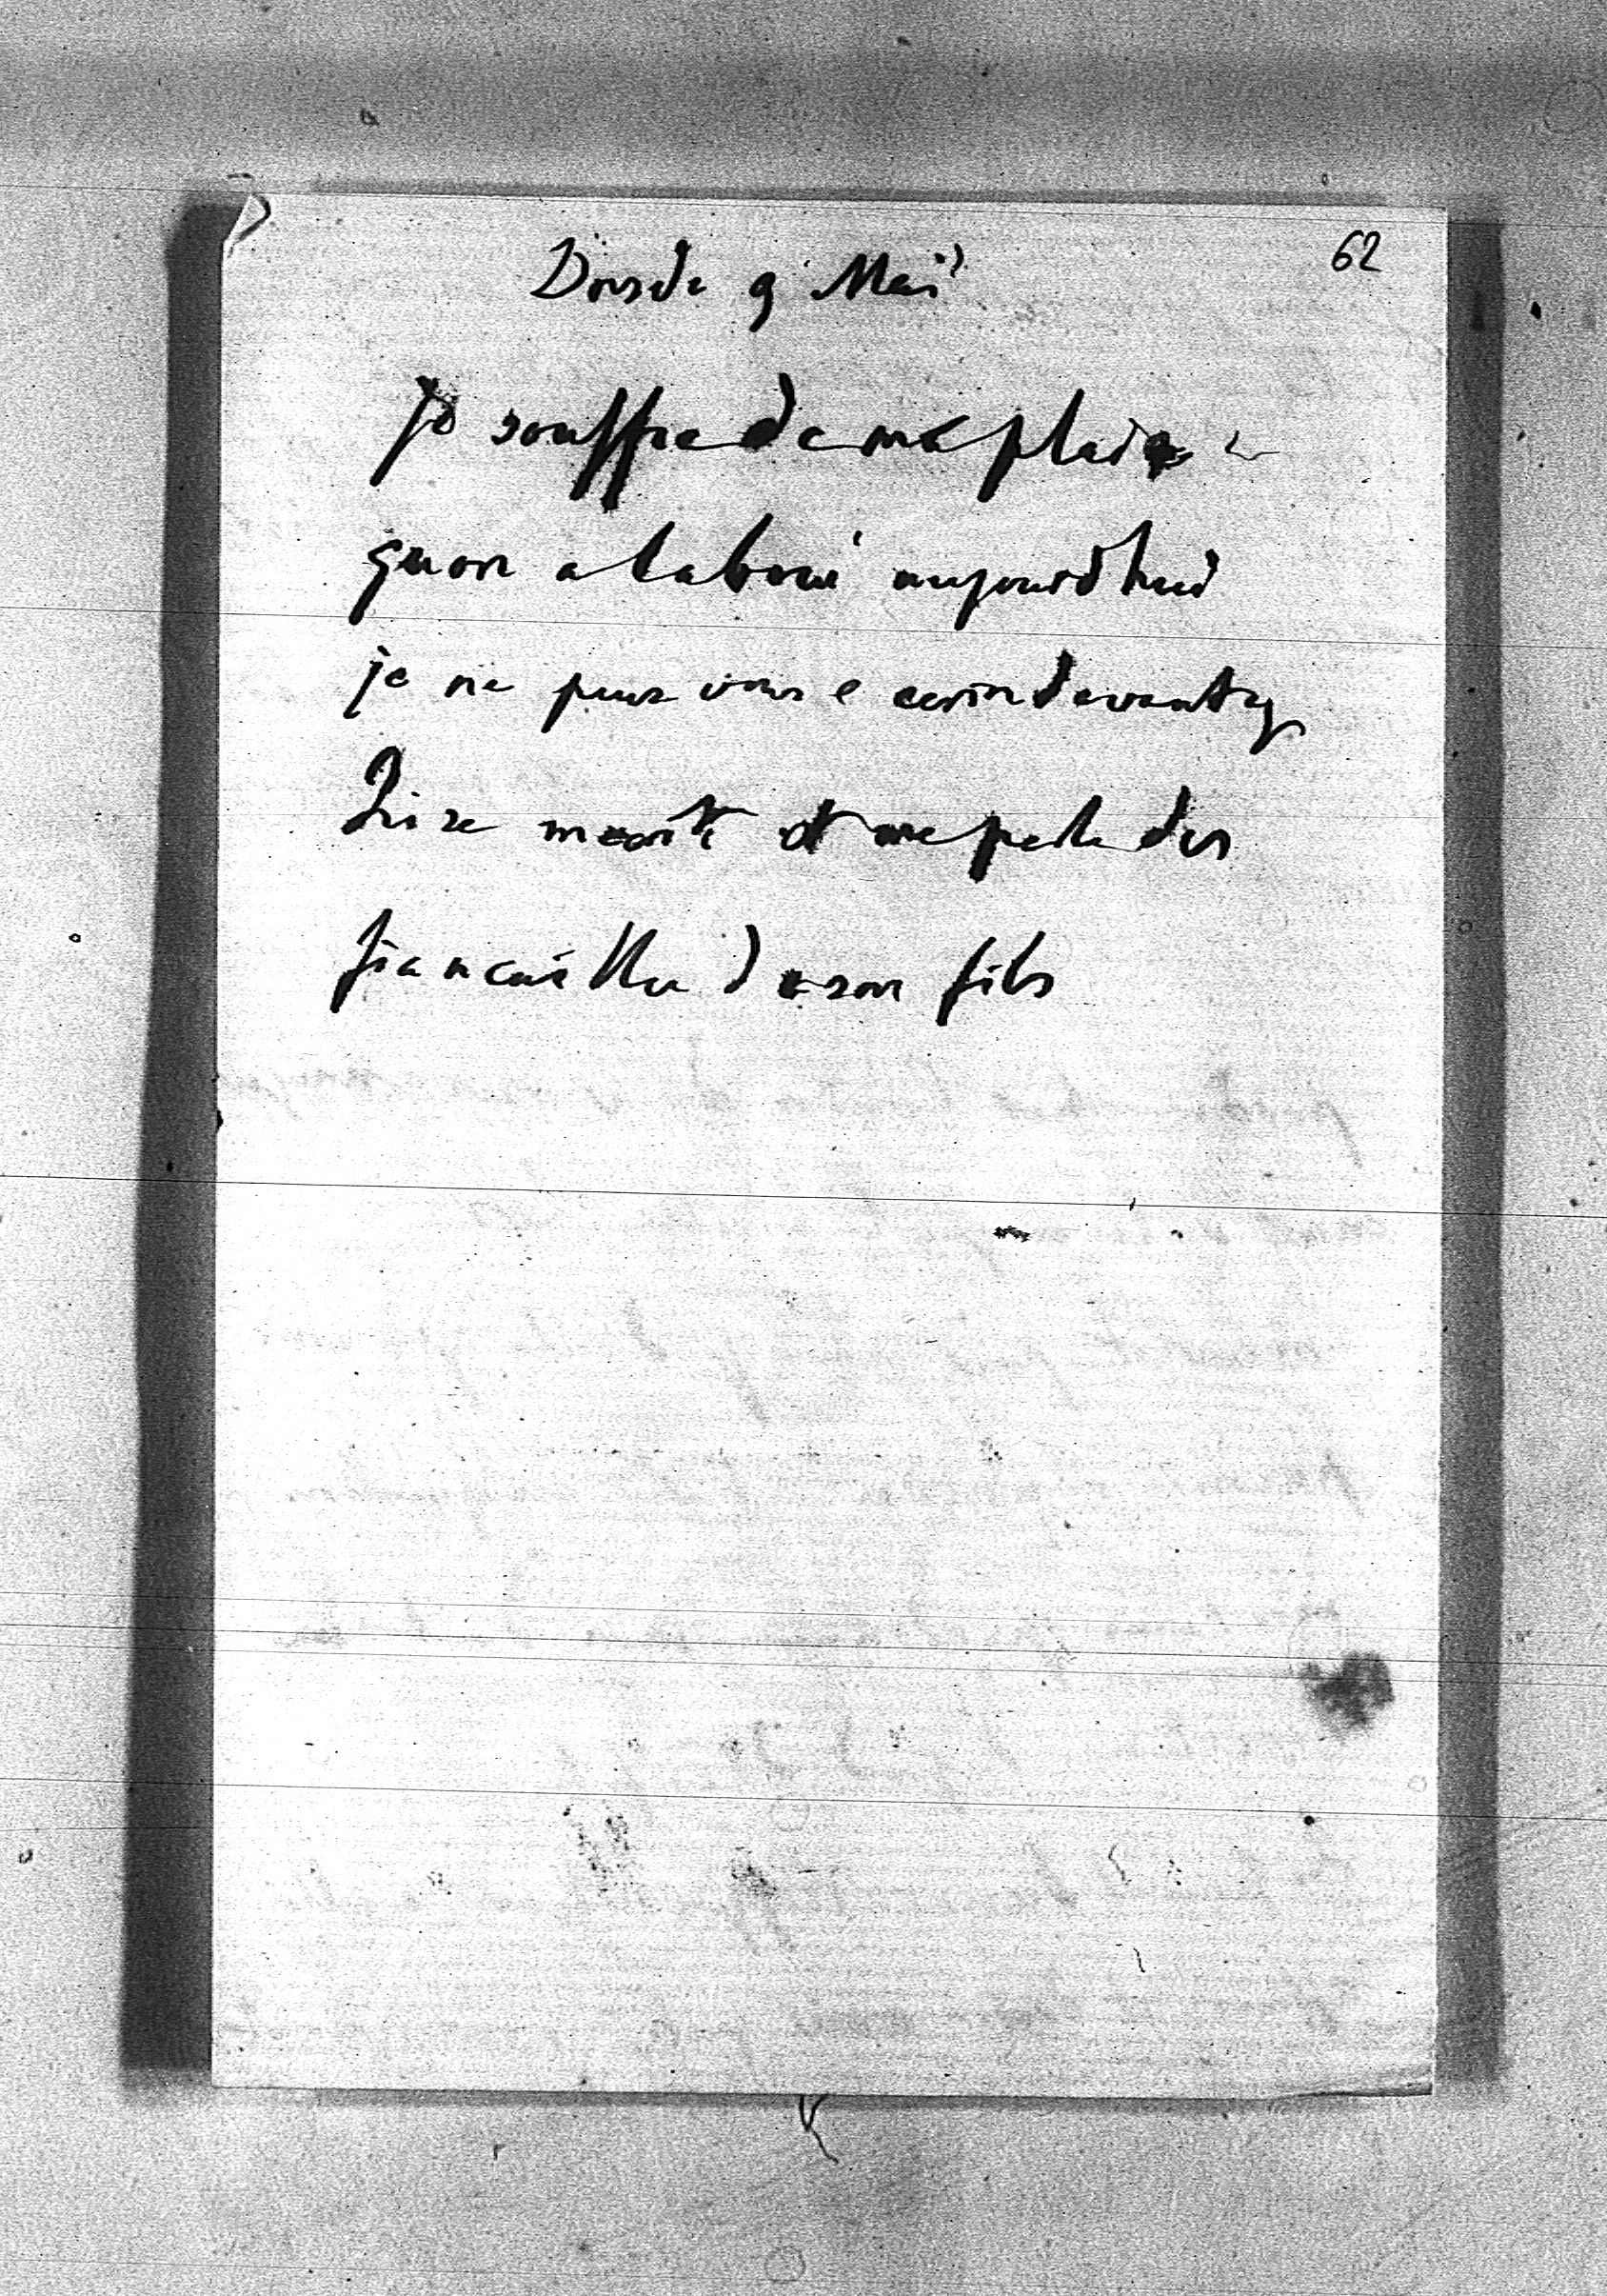 62
9 Mai
Je souffre de me plaie
quon a labouré aujourdhui
je ne peux vous e ecrire davantag
Lise m ecrit et me parle des
fiancaille de son fils